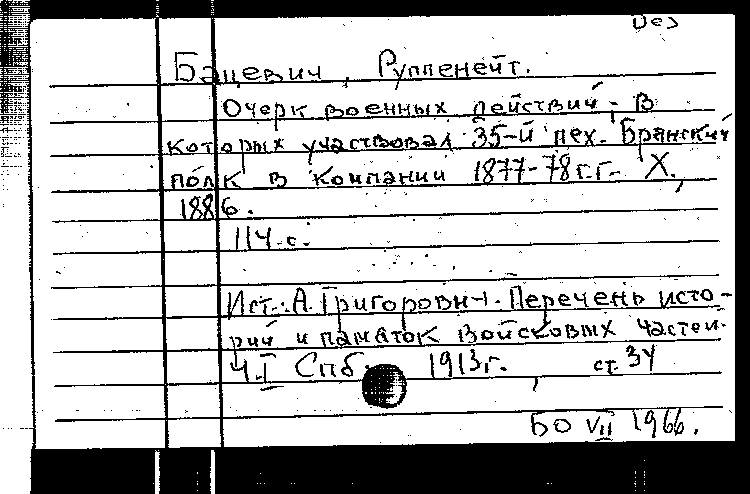 Без
Бацевич, Руппенейт.
Очерк военных действий, в
которых участвовал 35-й пех. Брянский
полк в компании 1877-78 г.г. - Х.,
1886.
114 с.
Ист.: А. Григорович. Перечень исто-
рий и памяток войсковых частей.
Ч.I Спб. 1913 г. , ст. 34
БО VII 1966.